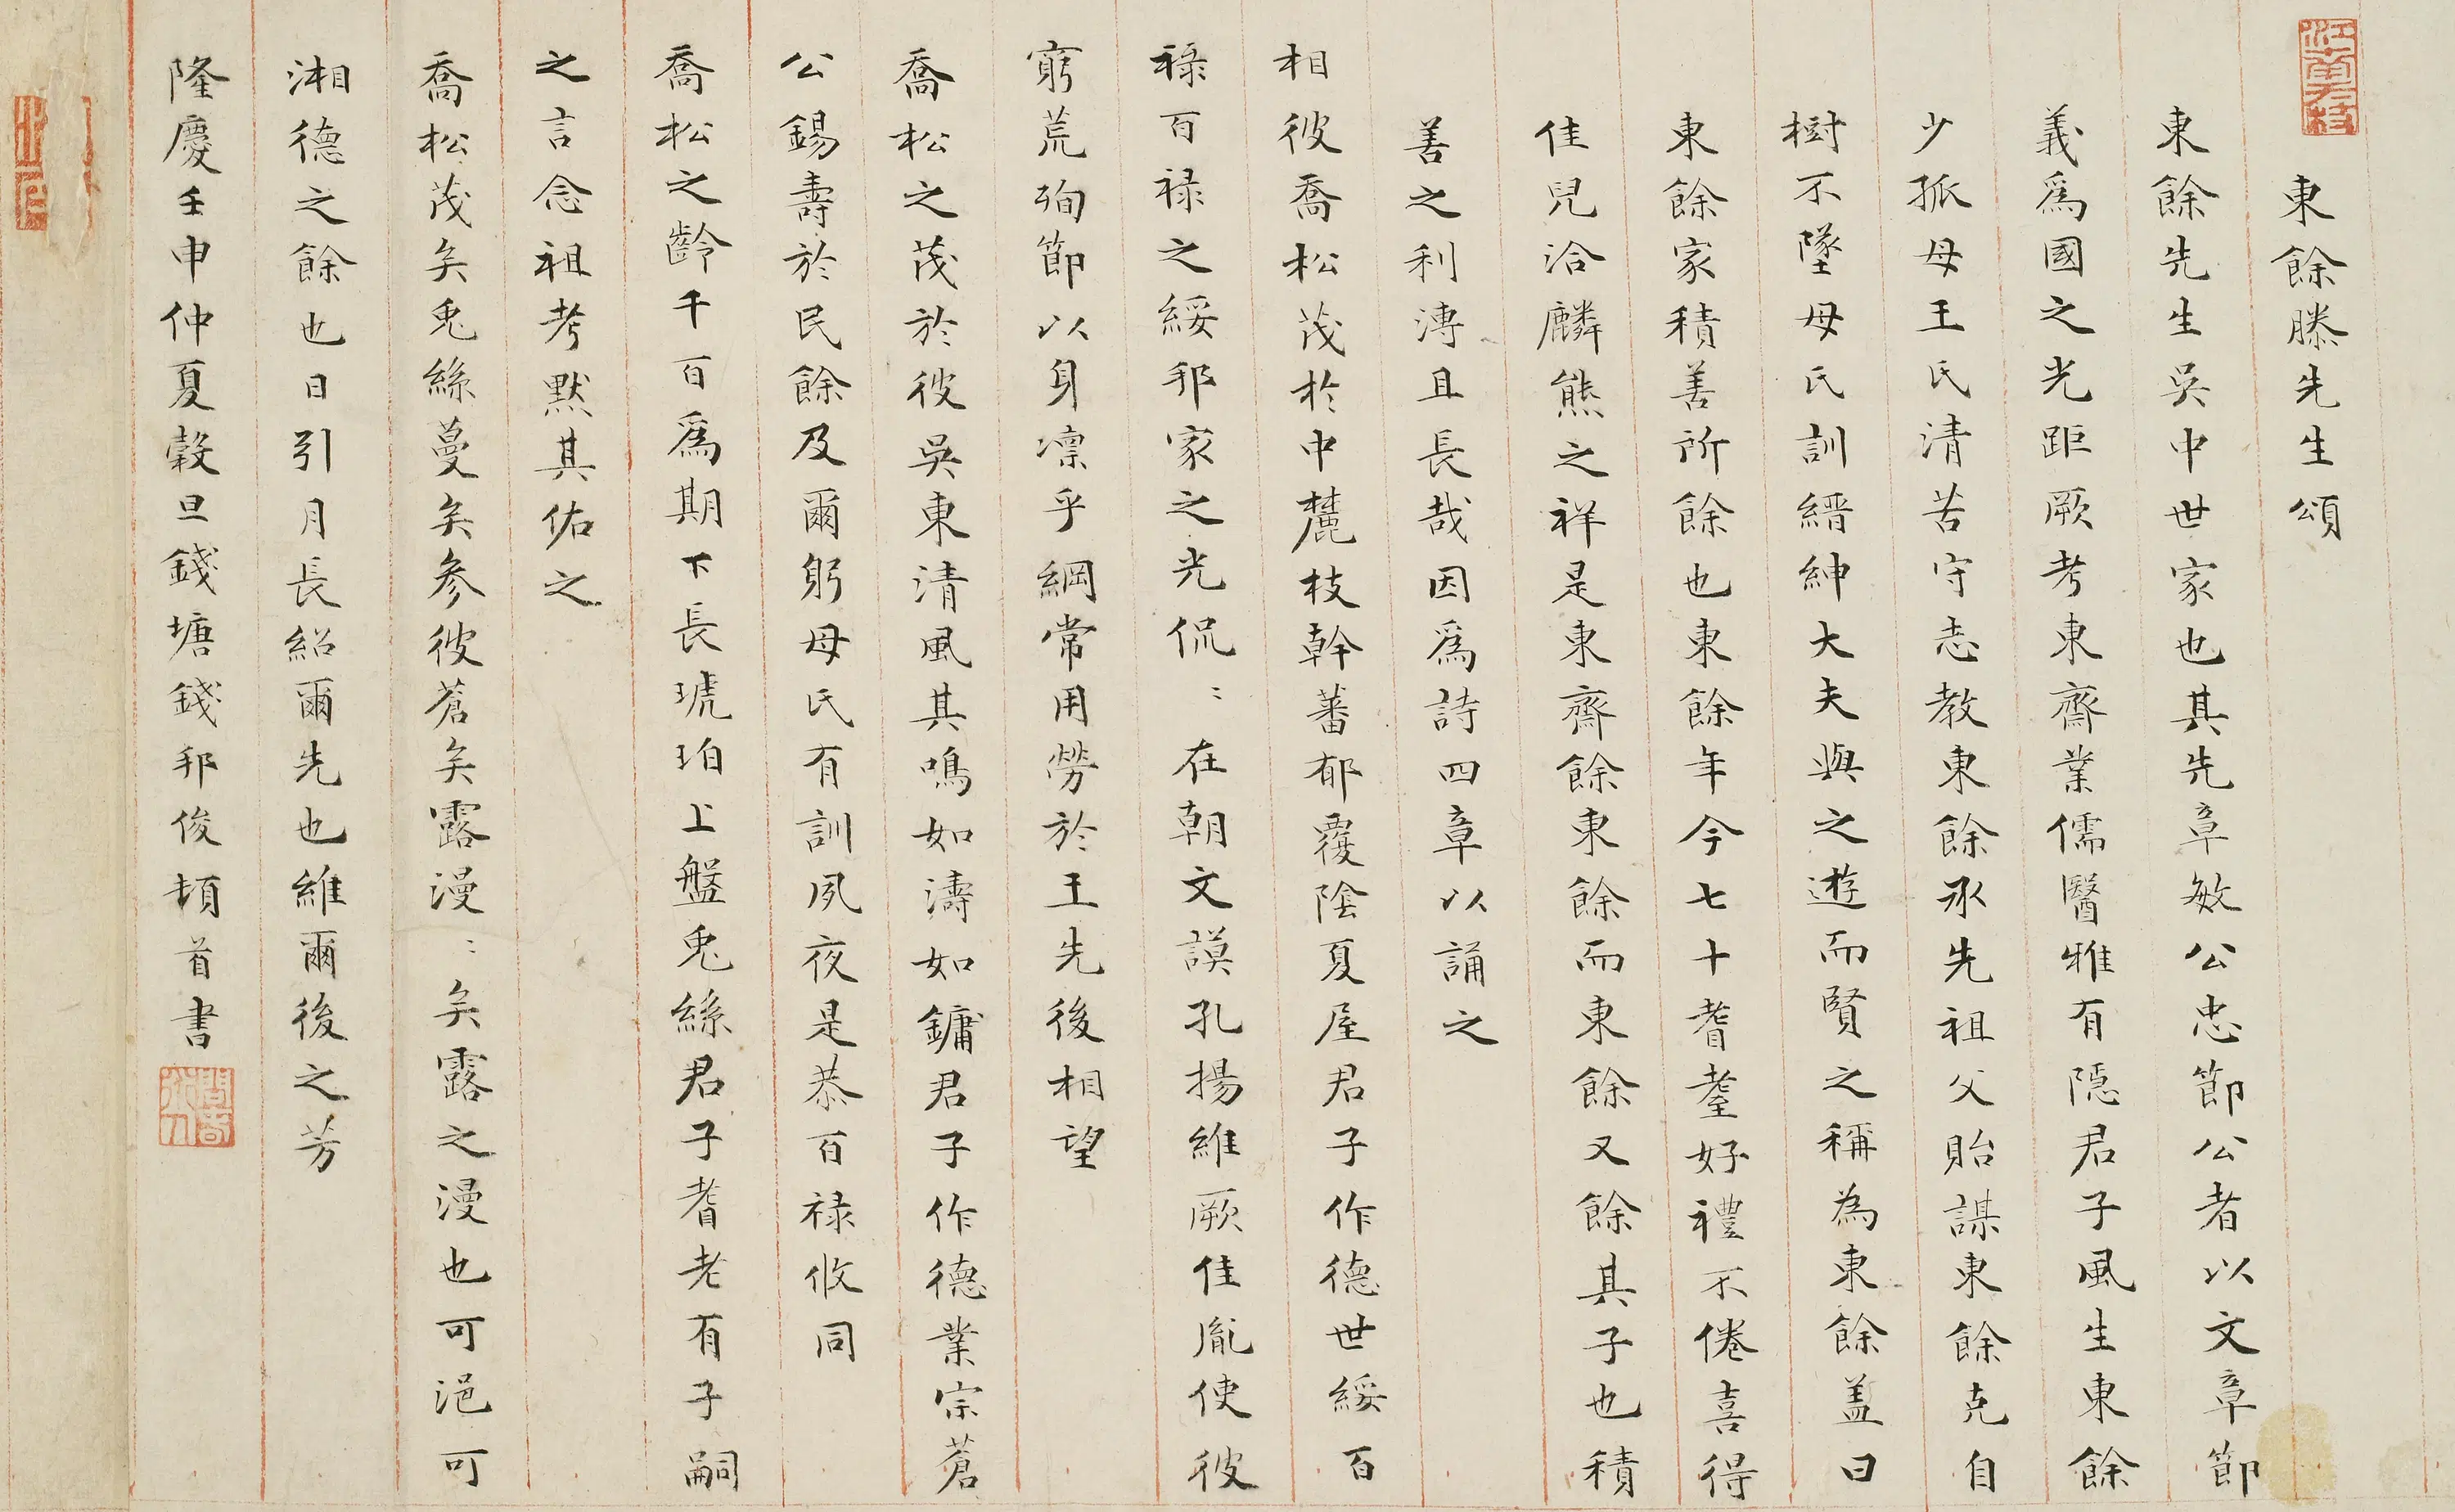 東餘滕先生頌
東餘先生吳中世家也其先章敏公忠節公者以文章節
義爲國之光距厥考東齋業儒醫雅有隱君子風生東餘
少孤母王氏清苦守志教東餘承先祖父貽謀東餘克自
樹不墜母氏訓縉紳大夫與之遊而賢之稱為東餘盖曰
東餘家積善所餘也東餘年今七十耆耋好禮不倦喜得
佳兒洽麟熊之祥是東齋餘東餘而東餘又餘其子也積
善之利溥且長哉因爲詩四章以誦之
相彼喬松茂於中麓枝幹蕃郁覆陰夏屋君子作德世綏百
祿百祿之綏邦家之光侃〻在朝文謨孔揚維厥佳胤使彼
窮荒殉節以身凛乎綱常用勞於王先後相望
喬松之茂於彼吳東清風其鳴如濤如鏞君子作德業宗蒼
公錫壽於民餘及爾躬母氏有訓夙夜是恭百禄攸同
喬松之齡千百爲期下長琥珀上盤兎絲君子耆老有子嗣
之言念祖考默其佑之
喬松茂矣兎絲蔓矣參彼蒼矣露漫〻矣露之漫也可浥可
湘德之餘也日引月長紹爾先也維爾後之芳
隆慶壬申仲夏穀旦錢塘錢邦俊頓首書